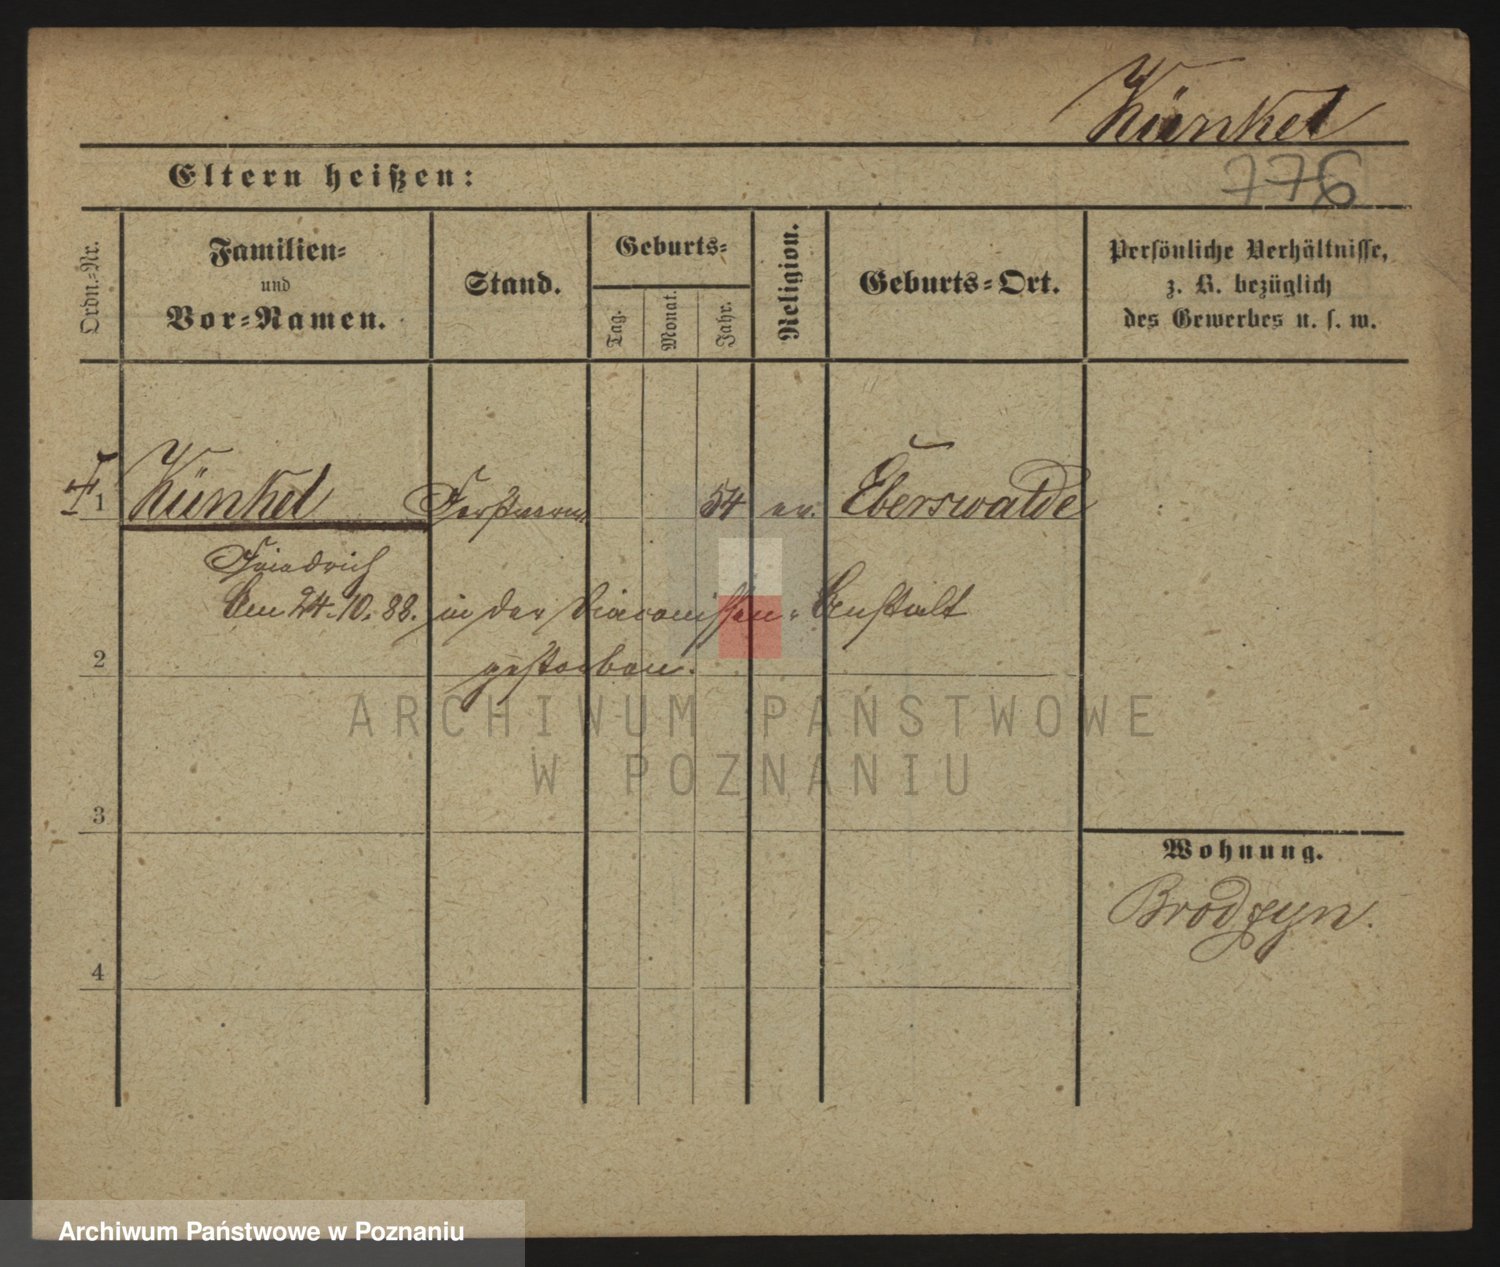 Künkel
776
Eltern heißen:
Ordn.-Nr.
Familien-
und
Vor-Namen.
Stand.
Geburts-
Tag.
Monat.
Jahr.
Religion.
Geburts-Ort.
Persönliche Verhältnisse,
z. B. bezüglich
des Gewerbes u. s. w.
1 Künkel 54 ev. Eberswalde
Friedrich
Am 24.10.88. in der Diaconissen-Anstalt
2 gestorben.
3
4
Wohnung.
Brodzyn.
ARCHIWUM PAŃSTWOWE
W POZNANIU
Archiwum Państwowe w Poznaniu